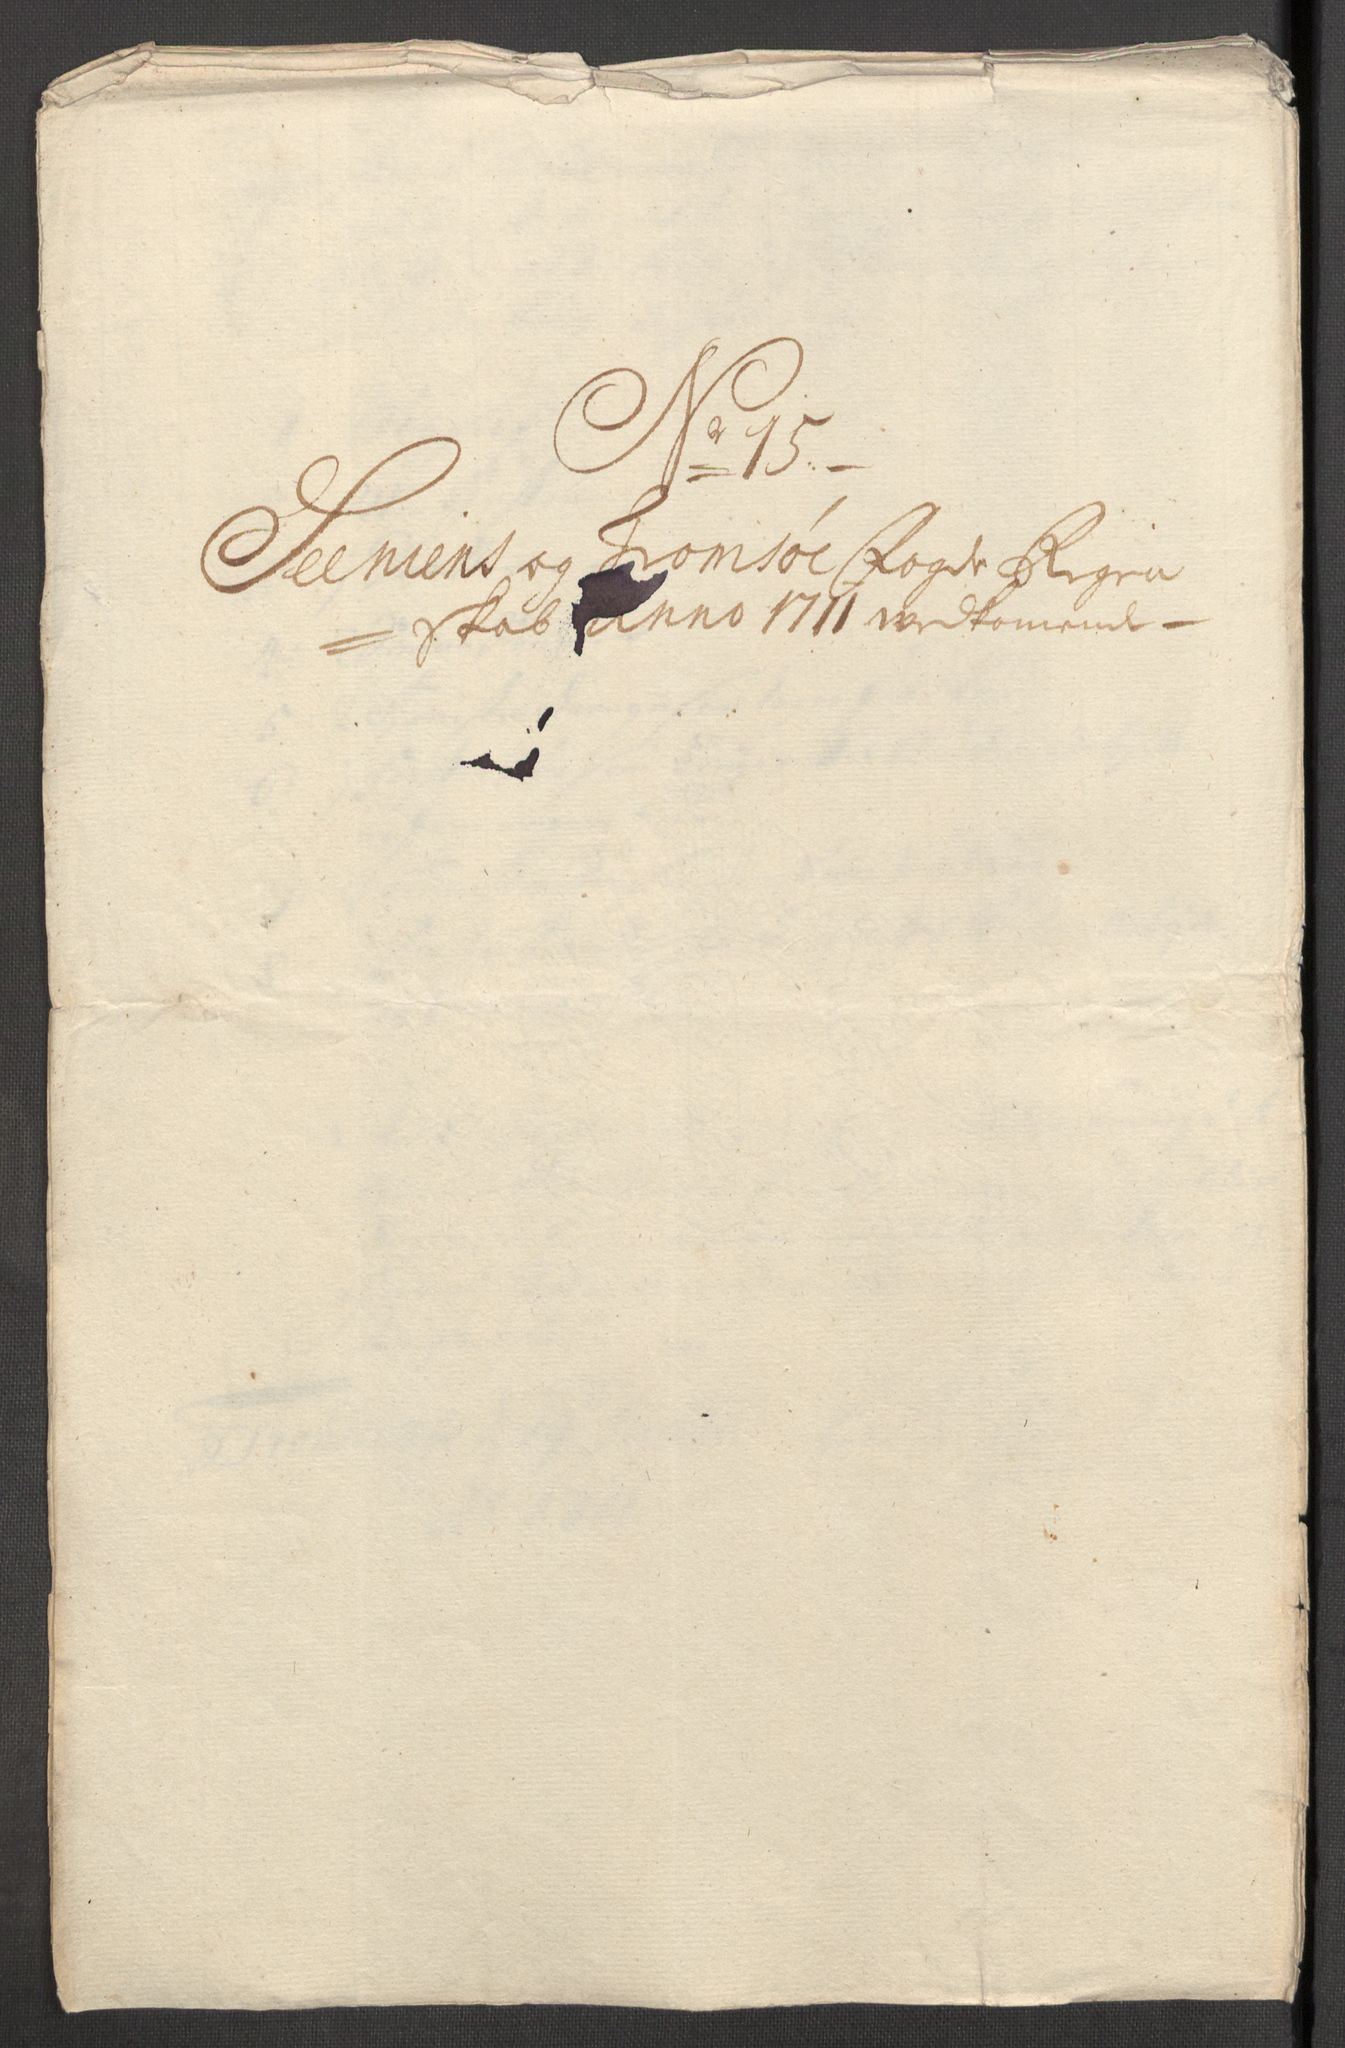 No 15.
Seeniens og Tromsøe Fogde Regen
skab Anno 1711 vedkomende